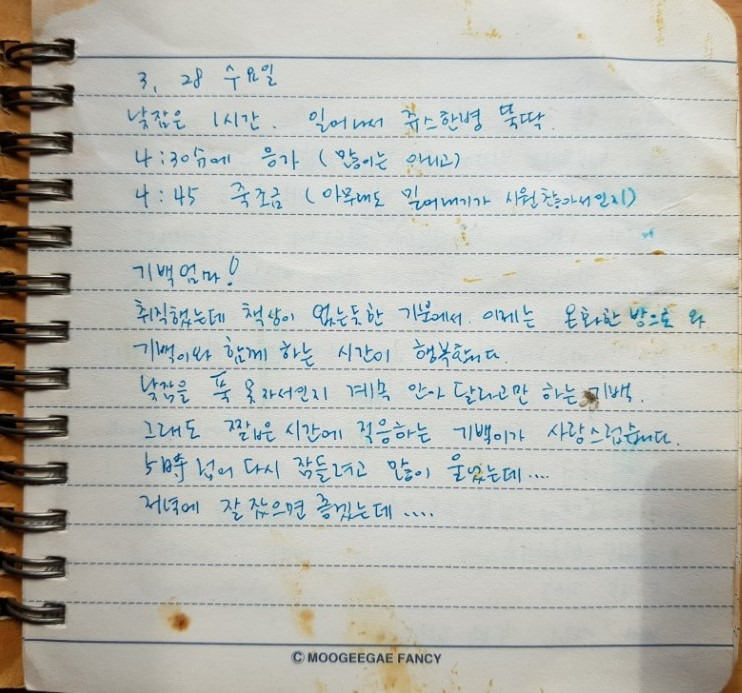 3, 28 수요일
낮잠은 1시간. 일어나서 쥬스한병 뚝딱.
4:30分에 응가 (많이는 아니고)
4:45 죽조금 (아무래도 밀어내기가 시원찮아서인지)
기백엄마!
취직했는데 책상이 없는듯한 기분에서. 이제는 온화한 방으로 와
기백이와 함께 하는 시간이 행복합니다.
낮잠을 푹 못자서인지 계속 안아 달라고만 하는 기백.
그래도 짧은 시간에 적응하는 기백이가 사랑스럽습니다.
5時 넘어 다시 잠들려고 많이 울었는데....
저녁에 잘 잤으면 좋겠는데....
© MOOGEEGAE FANCY